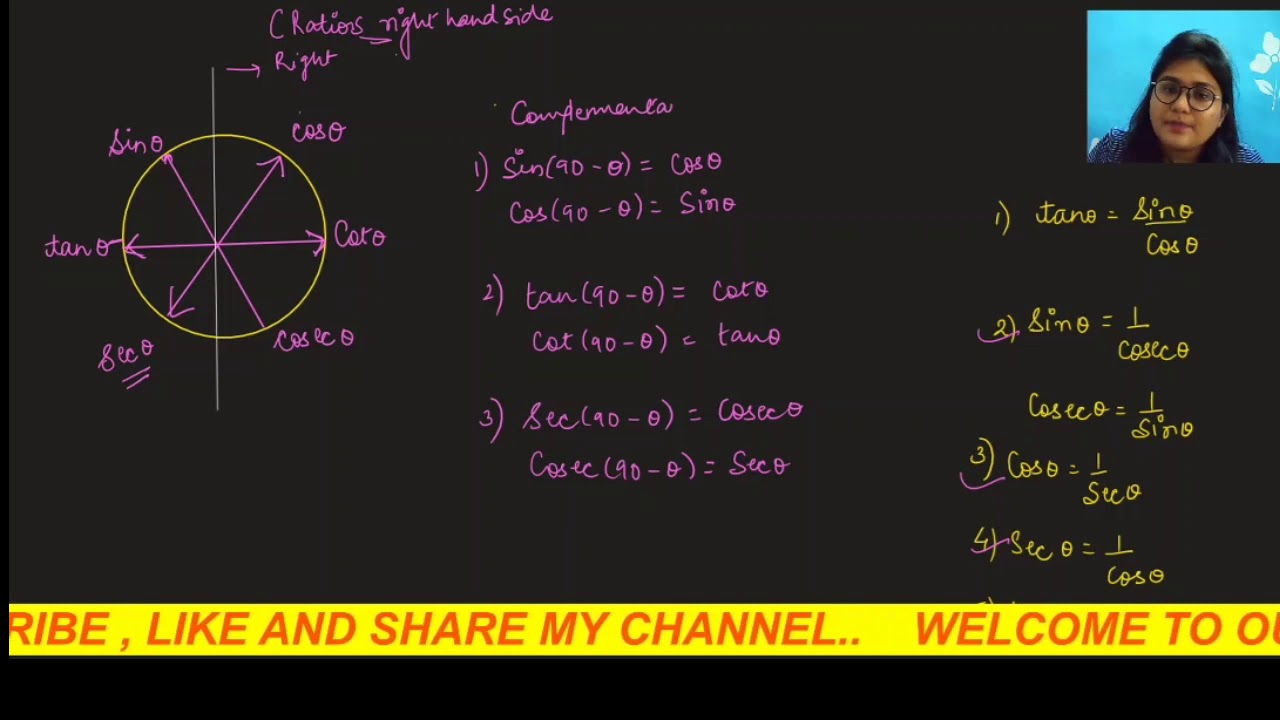 C Ratios right hand side
→ Right
Sinθ
Cosθ
tanθ
Cotθ
Secθ
Cosecθ
Complementa
1) Sin(90 - θ) = Cosθ
Cos(90 - θ) = Sinθ
2) tan(90 - θ) = Cotθ
Cot(90 - θ) = tanθ
3) Sec(90 - θ) = Cosecθ
Cosec(90 - θ) = Secθ
1) tanθ = Sinθ
Cosθ
2) Sinθ = 1
Cosecθ
Cosecθ = 1
Sinθ
3) Cosθ = 1
Secθ
4) Secθ = 1
Cosθ
RIBE , LIKE AND SHARE MY CHANNEL.. WELCOME TO OU